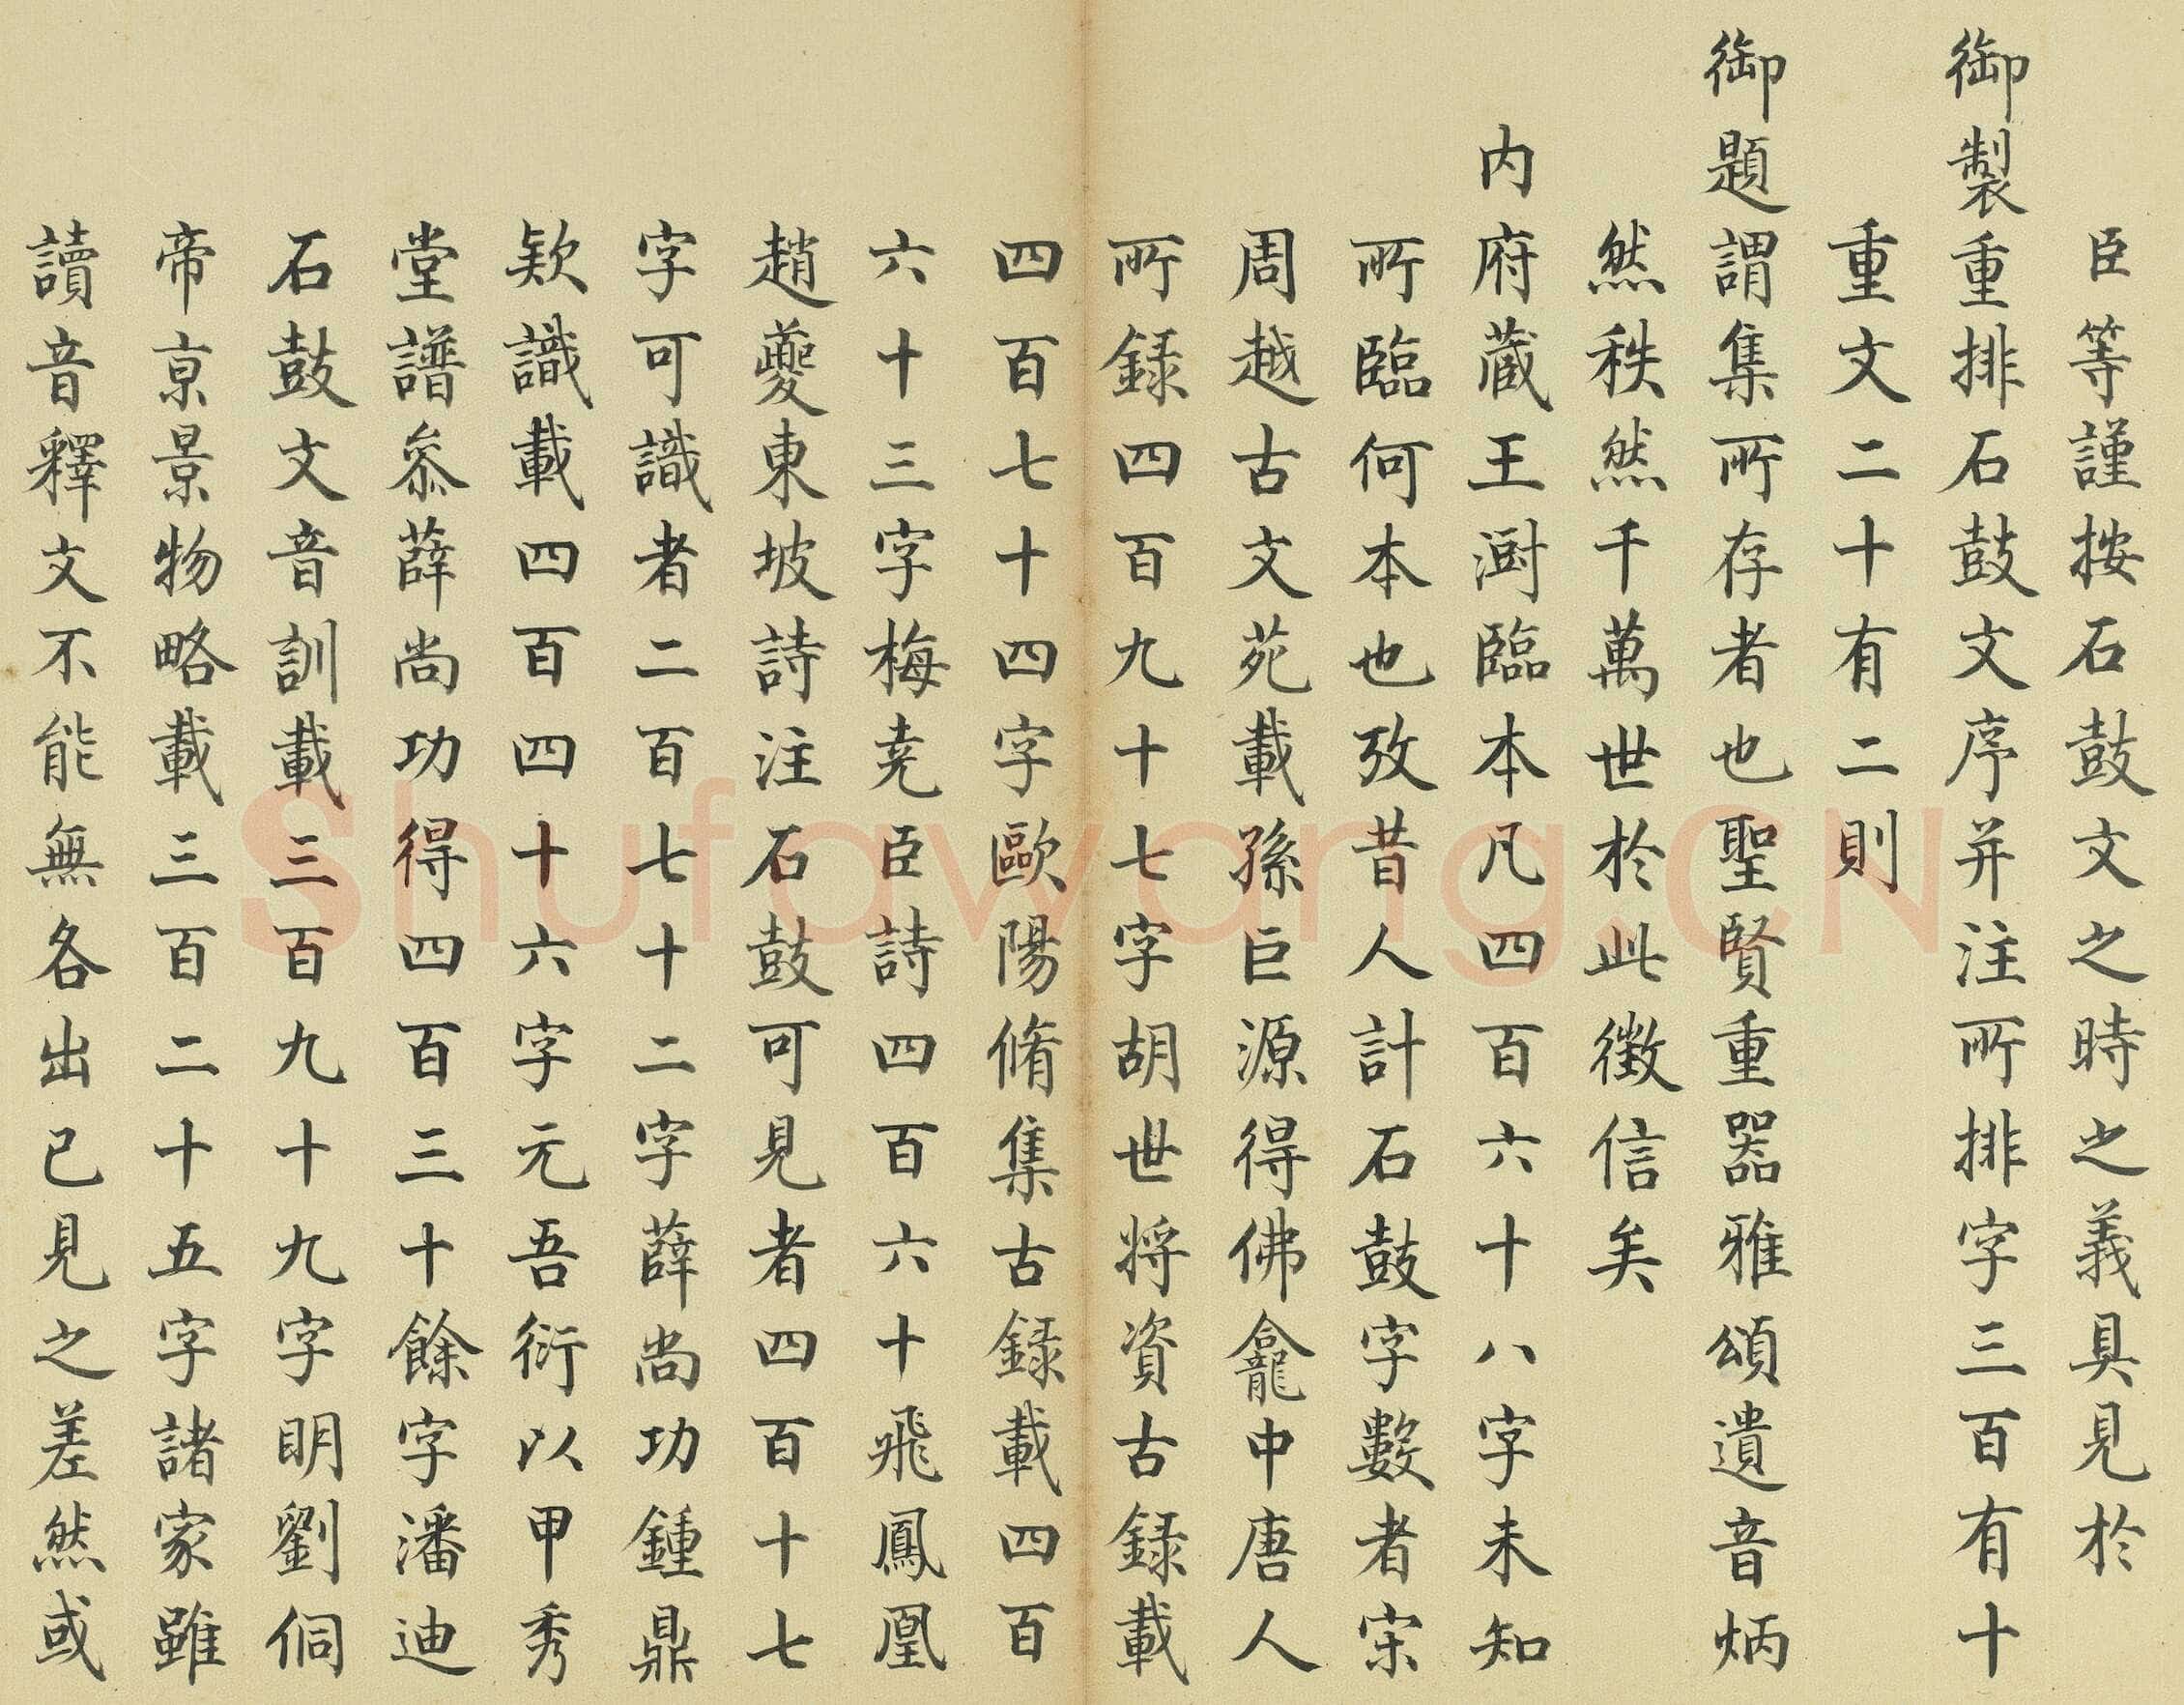 臣等謹按石鼓文之時之義具見於
御製重排石鼓文序并注所排字三百有十
重文二十有二則
御題謂集所存者也聖賢重器雅頌遺音炳
然秩然千萬世於此徵信矣
内府蔵王澍臨本凡四百六十八字未知
所臨何本也攷昔人計石鼓字數者宋
周越古文苑載孫巨源得佛龕中唐人
所録四百九十七字胡世将資古録載
四百七十四字歐陽脩集古録載四百
六十三字梅尭臣詩四百六十飛鳳凰
趙夔東坡詩注石鼓可見者四百十七
字可識者二百七十二字薛尚功鍾鼎
欵識載四百四十六字元吾衍以甲秀
堂譜叅薛尚功得四百三十餘字潘迪
石鼓文音訓載三百九十九字明劉侗
帝亰景物略載三百二十五字諸家雖
讀音釋文不能無各出己見之差然或
Shufawang.CN